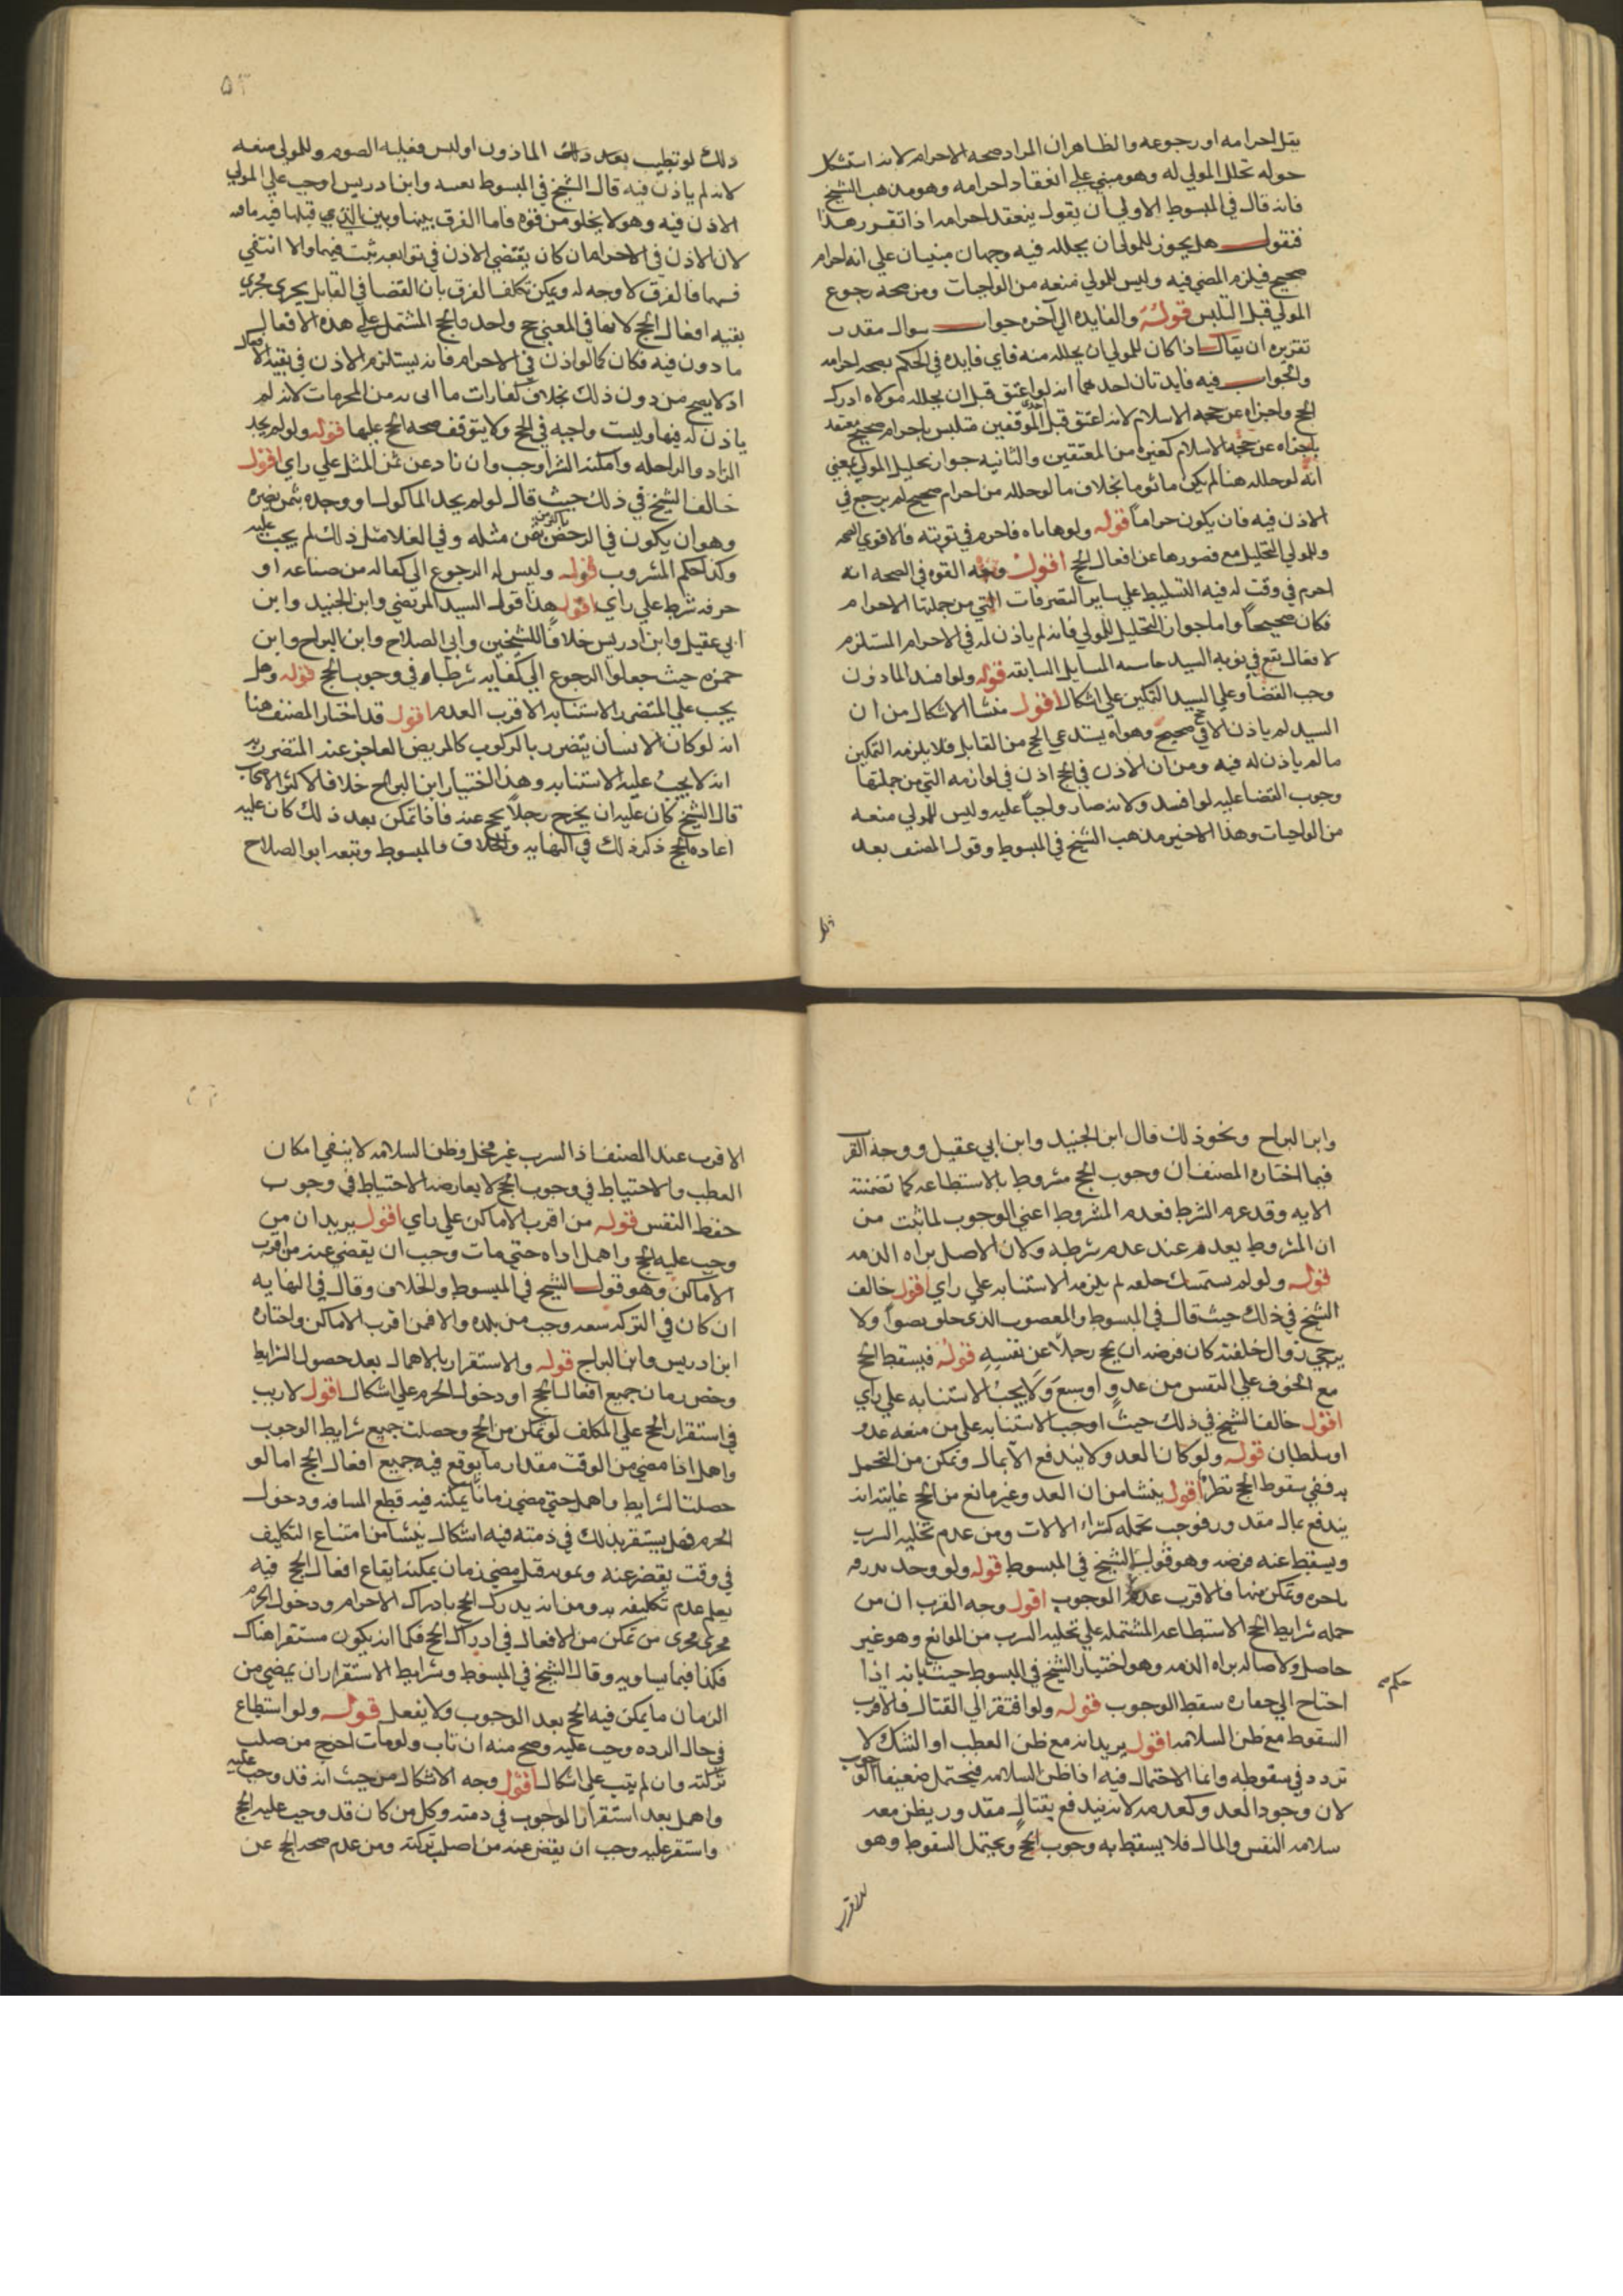 يتل احرامه او رجوعه والظاهر ان المراد صحه الاحرام لانه استشكل
حوله تحلل المولي له وهو مبني علي انعقاد احرامه وهو مذهب الشيخ
فانه قال في المبسوط الاولي ان يقول ينعقد احرامه اذا تقرر هذا
فنقول هل يجوز للمولي ان يحلله فيه وجهان مبنيان علي انه احرام
صحيح فيلزم المضي فيه وليس للمولي منعه من الواجبات ومن صحه رجوع
المولي قبل التلبس قوله والفايده الي آخره جواب سوال مقدر
تقريره ان يقال اذا كان للمولي ان يحلله منه فاي فايده في الحكم بصحه احرامه
والجواب فيه فايدتان احدهما انه لو اعتق قبل ان يحلله مولاه ادرك
الحج واجزاه عن حجه الاسلام لانه اعتق قبل الموقفين متلبس باحرام صحيح فتعتد
باجزاه عن حجه الاسلام كغيره من المعتقين والثانيه جواز تحليل المولي بمعني
انه لو حلله هنا لم يكن ماثوما بخلاف ما لو حلله من احرام صحيح لم يرجع في
الاذن فيه فان يكون حراما قوله ولو هاياه فاحرم في نوبته فالاقوي الصحه
وللمولي التحليل مع قصورها عن افعال الحج اقول وجه القوه في الصحه انه
احرم في وقت له فيه التسليط علي ساير التصرفات التي من جملتها الاحرام
فكان صحيحا واما جواز التحليل للمولي فانه لم ياذن له في الاحرام المستلزم
لافعال يقع في نوبه السيد المسايل السابقه قوله ولو افسد الماذون
وجب القضا وعلي السيد التمكين علي اشكال اقول منشا الاشكال من ان
السيد لم ياذن الا في حج صحيح وهو لا يستدعي الحج من القابل فلا يلزمه التمكين
مالم ياذن له فيه ومن ان الاذن في الحج اذن في لوازمه التي من جملتها
وجوب القضا عليه لو افسد ولانه صار واجبا عليه وليس للمولي منعه
من الواجبات وهذا الاخير مذهب الشيخ في المبسوط وقول المصنف بعد
ذلك
۵۳
ذلك لو تطيب بعد ذلك الماذون او لبس فعليه الصوم وللمولي منعه
لانه لم ياذن فيه قال الشيخ في المبسوط وابن ادريس اوجب علي المولي
الاذن فيه وهو لا يخلو من قوه فاما الفرق بينها وبين التي قبلها فيه
لان الاذن في الاحرام ان كان يقتضي الاذن في توابعه ثبت فيهما والا انتفي
فيهما فالفرق لا وجه له ويمكن تكلف الفرق بان القضا في القابل يجري مجري
بقيه افعال الحج لانها في المعني حج واحد والحج المشتمل علي هذه الافعال
ماذون فيه فكان كما لو اذن في الاحرام فانه يستلزم الاذن في بقيه الافعال
اذ لا يصح من دون ذلك بخلاف كفارات ما اتى به من المحرمات لانه لم
ياذن له فيها وليست واجبه في الحج ولا يتوقف صحه الحج عليها قوله ولو لم يجد
الزاد والراحله وامكنه الشرا وجب وان زاد عن ثمن المثل علي راي اقول
خالف الشيخ في ذلك حيث قال لو لم يجد الماكول او وجده بثمن يضره
وهو ان يكون في الرخص باكثر من ثمن مثله وفي الغلا مثل ذلك لم يجب عليه
وكذا حكم المشروب قوله وليس له الرجوع الي كفاله من صناعه او
حرفه شرط علي راي اقول هذا قول السيد المرتضي وابن الجنيد وابن
ابي عقيل وابن ادريس خلافا للشيخين وابي الصلاح وابن البراج وابن
حمزه حيث جعلوا الرجوع الي كفايه شرطا في وجوب الحج قوله وهل
يجب علي المتضرر الاستنابه الاقرب العدم اقول قد اختار المصنف هنا
انه لو كان الانسان يتضرر بالركوب كالمريض العاجز عنه المتضرر به
انه لا يجب عليه الاستنابه وهذا اختيار ابن البراج خلافا لاكثر الاصحاب
قال الشيخ كان عليه ان يخرج رجلا يحج عنه فاذا تمكن بعد ذلك كان عليه
اعاده الحج ذكر ذلك في النهايه والخلاف والمبسوط وتبعه ابو الصلاح
وابن البراج ونحو ذلك قال ابن الجنيد وابن ابي عقيل ووجه القرب
فيما اختاره المصنف ان وجوب الحج مشروط بالاستطاعه كما تضمنته
الايه وقد عدم الشرط فعدم المشروط اعني الوجوب لما ثبت من
ان المشروط يعدم عند عدم شرطه ولان الاصل براه الذمه
قوله ولو لم يستمسك خلقه لم يلزمه الاستنابه علي راي اقول خالف
الشيخ في ذلك حيث قال في المبسوط والمعضوب الذي خلق نضوا ولا
يرجي زوال خلقته كان فرضه ان يحج رجلا عن نفسه قوله فيسقط الحج
مع الخوف علي النفس من عدو او سبع ولا يجب الاستنابه علي راي
اقول خالف الشيخ في ذلك حيث اوجب الاستنابه علي من منعه عدو
او سلطان قوله ولو كان العدو لا يندفع الا بمال وتمكن من التحمل
به ففي سقوط الحج نظر اقول ينشا من ان العدو غير مانع من الحج غايته انه
يندفع بمال مقدور فوجب تحمله كشراء الالات ومن عدم تخليه السرب
ويسقط عنه فرضه وهو قول الشيخ في المبسوط قوله ولو وجد بدرقه
باجره وتمكن منها فالاقرب عدم الوجوب اقول وجه القرب ان من
جمله شرايط الحج الاستطاعه المشتمله علي تخليه السرب من الموانع وهو غير
حاصل ولاصاله براه الذمه وهو اختيار الشيخ في المبسوط حيث حكم بانه اذا
احتاج الي خفاره سقط الوجوب قوله ولو افتقر الي القتال فالاقرب
السقوط مع ظن السلامه اقول يريد انه مع ظن العطب او الشك لا
تردد في سقوطه وانما الاحتمال فيه اذا ظن السلامه فيحتمل ضعيفا الوجوب
لان وجود العدو كعدمه لانه يندفع بقتال مقدور يظن معه
سلامه النفس والمال فلا يسقط به وجوب الحج ويحتمل السقوط وهو
حكم صح
الاقرب
الاقرب عند المصنف اذ السرب غير مخل وظن السلامه لا ينفي امكان
العطب والاحتياط في وجوب الحج لا يعارضه الاحتياط في وجوب
حفظ النفس قوله من اقرب الاماكن علي راي اقول يريد ان من
وجب عليه الحج واهمل اداه حتي مات وجب ان يقضي عنه من اقرب
الاماكن وهو قول الشيخ في المبسوط والخلاف وقال في النهايه
ان كان في التركه سعه وجب من بلده والا فمن اقرب الاماكن واختاره
ابن ادريس وابن البراج قوله والاستقرار بالاهمال بعد حصول الشرايط
ومضي زمان جميع افعال الحج او دخول الحرم علي اشكال اقول لا ريب
في استقرار الحج علي المكلف لو تمكن من الحج وحصلت جميع شرايط الوجوب
واهمل اذا مضي من الوقت مقدار ما يوقع فيه جميع افعال الحج اما لو
حصلت الشرايط واهمل حتي مضي زمانا يمكنه فيه قطع المسافه ودخول
الحرم فهل يستقر بذلك في ذمته فيه اشكال ينشا من امتناع التكليف
في وقت يقصر عنه وبموته قبل مضي زمان يمكنه ايقاع افعال الحج فيه
يعلم عدم تكليفه به ومن انه يدرك الحج بادراك الاحرام ودخول الحرم
مجري مجري من تمكن من الافعال في ادراك الحج فكما انه يكون مستقرا هناك
فكذا فيما يساويه وقال الشيخ في المبسوط وشرايط الاستقرار ان يمضي من
الزمان ما يمكن فيه الحج بعد الوجوب ولا يفعل قوله ولو استطاع
في حال الرده وجب عليه وصح منه ان تاب ولو مات اخرج من صلب
تركته وان لم يتب علي اشكال اقول وجه الاشكال من حيث انه قد وجب عليه
واهمل بعد استقرار الوجوب في ذمته وكل من كان قد وجب عليه الحج
واستقر عليه وجب ان يقضي عنه من اصل تركته ومن عدم صحه الحج عن